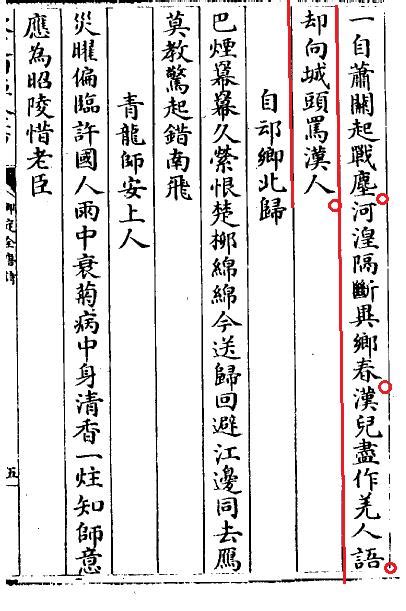 一自蕭關起戰塵河湟隔斷異鄉春漢兒盡作羌人語
却向城頭罵漢人
自邙鄉北歸
巴煙羃羃久縈恨楚柳綿綿今送歸回避江邊同去鴈
莫教驚起錯南飛
青龍師安上人
災曜偏臨許國人雨中衰菊病中身清香一炷知師意
應為昭陵惜老臣
御定全唐詩
五